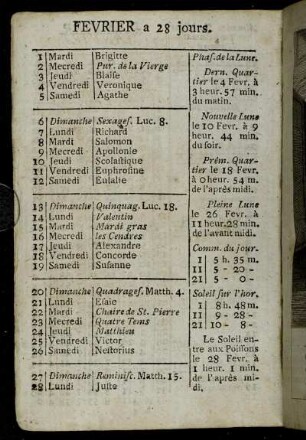 FEVRIER a 28 jours.
1 Mardi Brigitte
2 Mecredi Pur. de la Vierge
3 Jeudi Blaiſe
4 Vendredi Veronique
5 Samedi Agathe
6 Dimanche Sexageſ. Luc. 8.
7 Lundi Richard
8 Mardi Salomon
9 Mecredi Apollonie
10 Jeudi Scolaſtique
11 Vendredi Euphroſine
12 Samedi Eulalie
13 Dimanche Quinquag. Luc. 18.
14 Lundi Valentin
15 Mardi Mardi gras
16 Mecredi les Cendres
17 Jeudi Alexandre
18 Vendredi Concorde
19 Samedi Suſanne
20 Dimanche Quadrageſ. Matth. 4.
21 Lundi Eſaie
22 Mardi Chaire de St. Pierre
23 Mecredi Quatre Tems
24 Jeudi Matthieu
25 Vendredi Victor
26 Samedi Neſtorius
27 Dimanche Reminiſc. Matth. 15.
28 Lundi Juſte
Phaſ. de la Lune.
Dern. Quar-
tier le 4 Fevr. à
3 heur. 57 min.
du matin.
Nouvelle Lune
le 10 Fevr. à 9
heur. 44 min.
du ſoir.
Prém. Quar-
tier le 18 Fevr.
à 0 heur. 54 m.
de l'aprés midi.
Pleine Lune
le 26 Fevr. à
11 heur. 28 min.
de l'avant midi.
Comm. du jour.
1 5 h. 35 m.
11 5 - 20 -
21 5 - 0 -
Soleil ſur l'hor.
1 8 h. 48 m.
11 9 - 28 -
21 10 - 8 -
Le Soleil en-
tre aux Poiſſons
le 28 Fevr. à
1 heur. 1 min.
de l'aprés mi-
di.